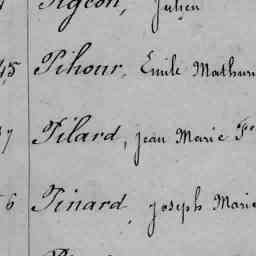 Pigeon, Julien
45 Pihour, Emile Mathuri
7 Pilard, Jean Marie Fr
6 Pinard, Joseph Marie